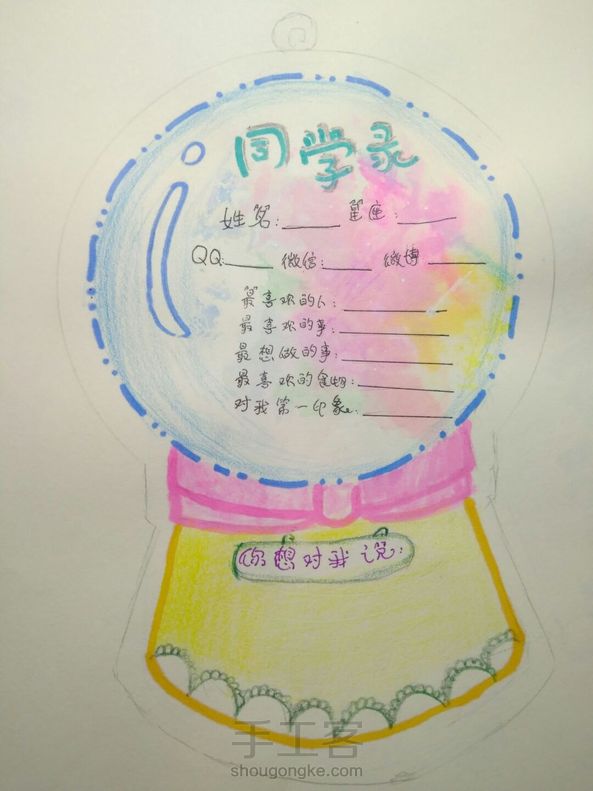 同学录
姓名:______ 星座:______
QQ:_____ 微信:_____ 微博______
最喜欢的人:__________
最喜欢的事:__________
最想做的事:__________
最喜欢的食物:__________
对我第一印象:__________
你想对我说:
手工客
shougongke.com